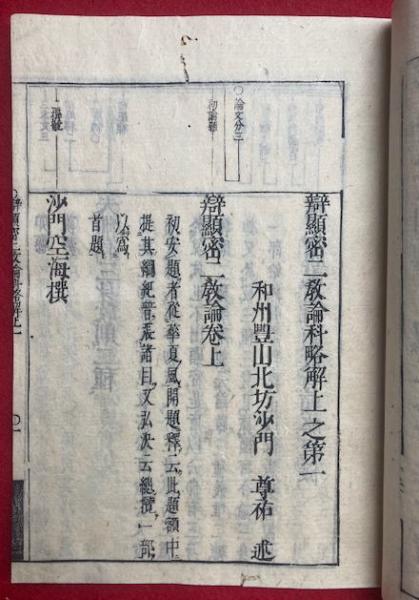 辯顯密二教論科略解上之第一
和州豐山北坊沙門　尊祐　述
○論文分三
初論題
辯顯密二教論卷上
初安題者從華夏風開題釋云此題額中
提其綱紀普張諸目又弘決云總攬一部
以爲
首題
沙門空海撰
辯顯密二教論科略解上一